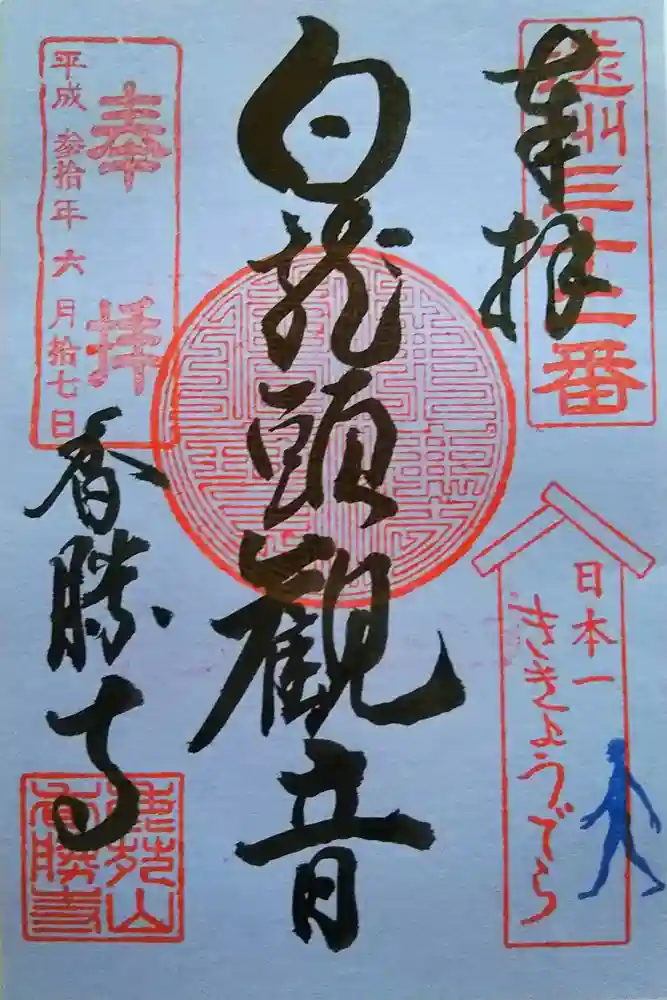 遠州三十三番
奉拝
日本一
ききょうでら
白龍頭観音
奉拝
平成参拾年六月拾七日
香勝寺
鹿苑山
香勝寺